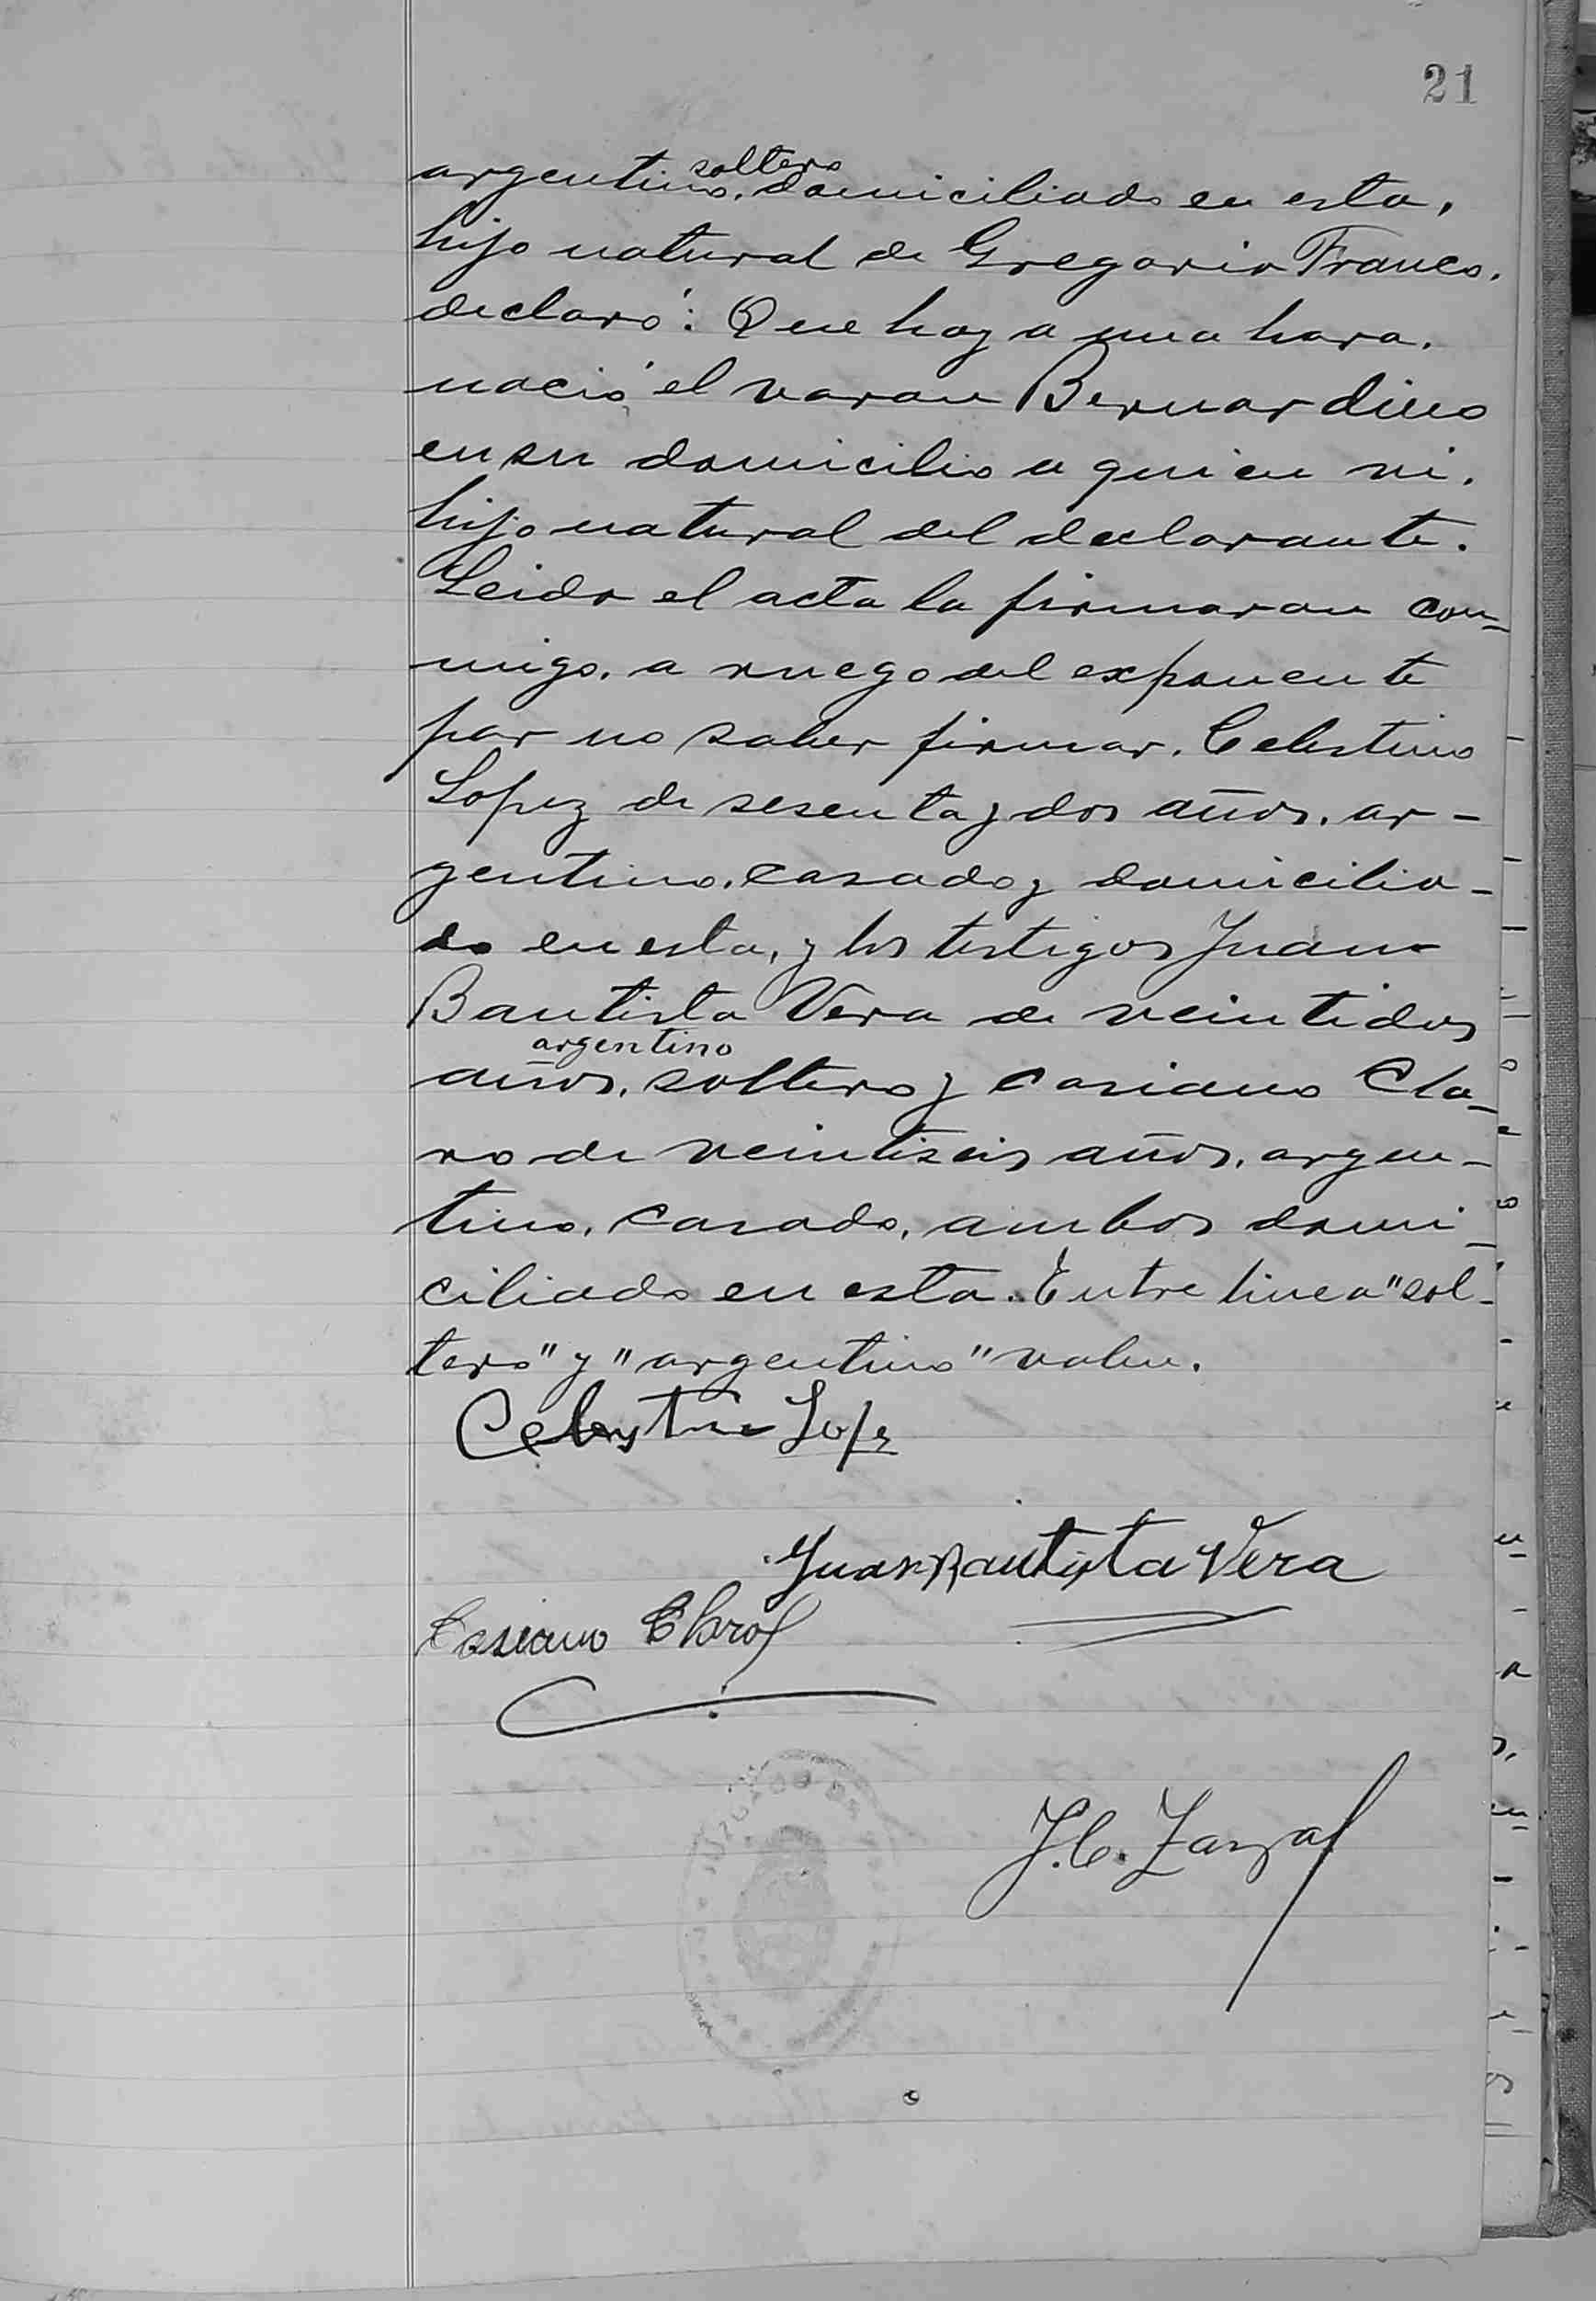 21
argentino, soltero domiciliado en esta,
hijo natural de Gregoria Franco.
declaró: Que hoy a una hora.
nació el varon Bernardino
en su domicilio a quien vi.
hijo natural del declarante.
Leida el acta la firmaron con-
migo, a ruego del exponente
por no saber firmar, Celestino
Lopez de sesenta y dos años, ar-
gentino, casado y domicilia-
do en esta, y los testigos Juan
Bautista Vera de veintidos
argentino
años, soltero y Casiano Cla-
ro de veintiseis años, argen-
tino, casado, ambos domi-
ciliado en esta. Entre linea "sol-
tero" y "argentino" valen.
Celestino Lopez
Juan Bautista Vera
Casiano Claro
J. C.
JUZGADO DE